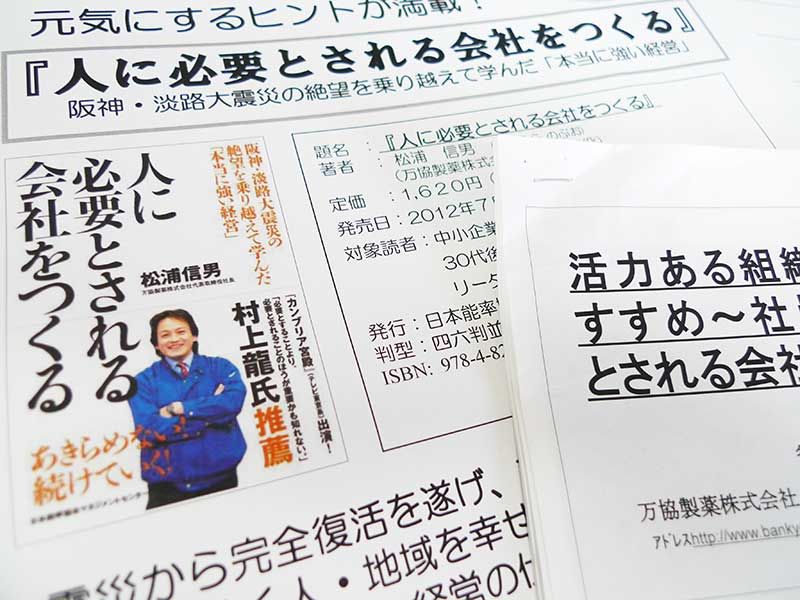 元気にするヒントが満載！
『人に必要とされる会社をつくる』
阪神・淡路大震災の絶望を乗り越えて学んだ「本当に強い経営」
阪神・淡路大震災の
絶望を乗り越えて学んだ
「本当に強い経営」
人に
必要とされる
会社をつくる
松浦信男
万協製薬株式会社代表取締役社長
「カンブリア宮殿」(テレビ東京系)出演！
「必要とすることより、
必要とされることのほうが重要かも知れない。」
村上龍氏推薦
あきらめない！
続けていく！
日本能率協会マネジメントセンター
題名：『人に必要とされる会社をつくる』
著者：松浦 信男
(万協製薬株式会
定価：1,620円（
発売日：2012年7月
対象読者：中小企業
30代後
リータ
発行：日本能率協
判型：四六判並
ISBN: 978-4-82
震災から完全復活を遂げ、
人・地域を幸せ
経営の仕
活力ある組織
すすめ～社
とされる会社
万協製薬株式会社
アドレスhttp://www.banky